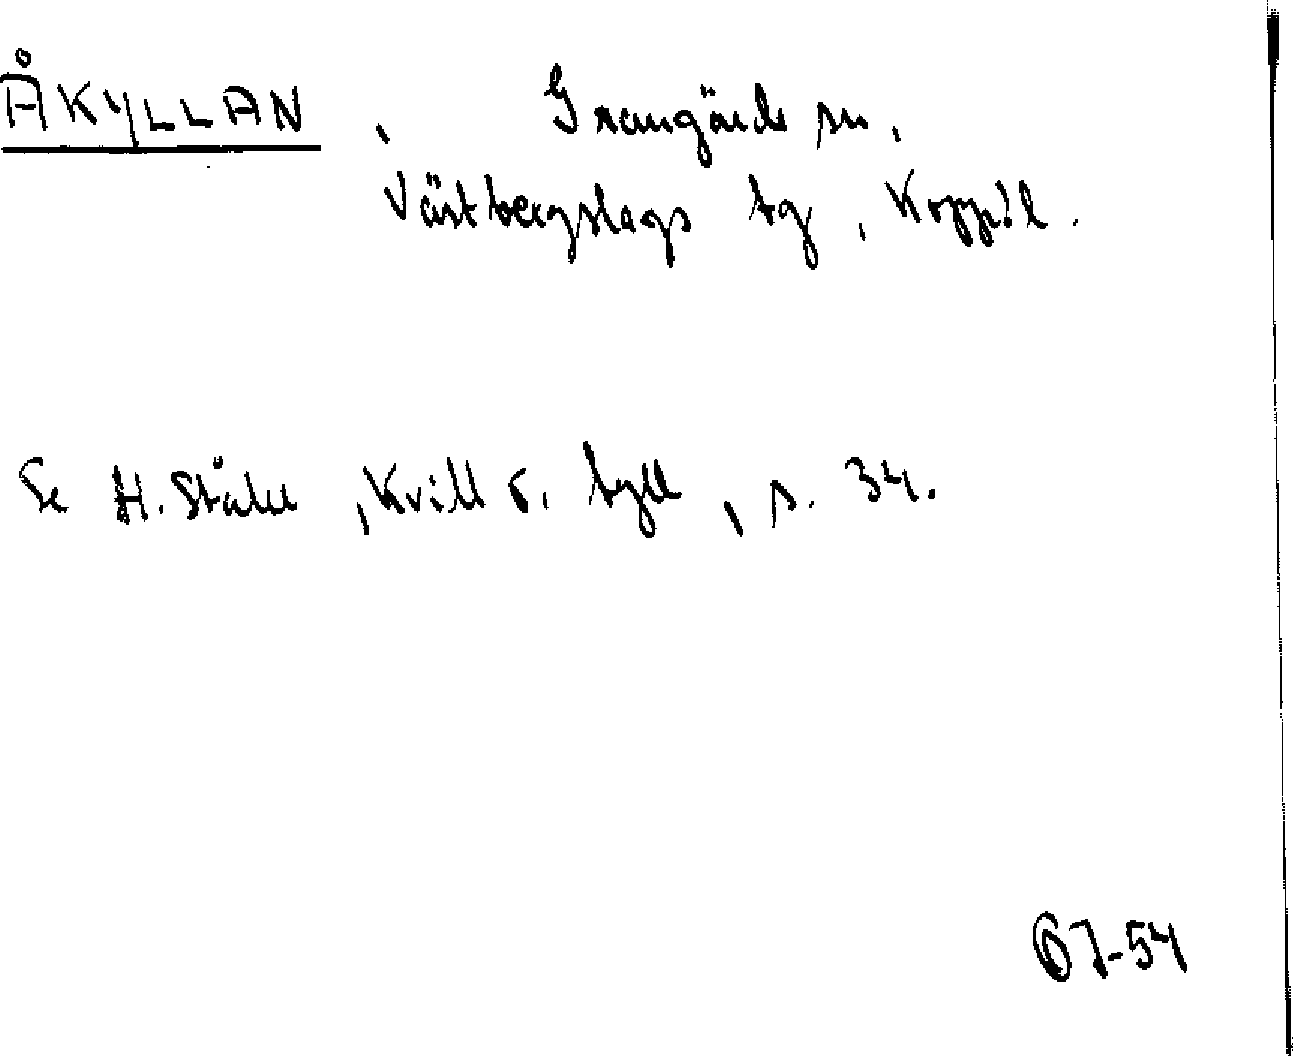 ÅKYLLAN, Grangärde sn,
Västbergslags tg, Kopp:l.
Se H. Ståhl, Kvill o. tyll, s. 34.
67-54